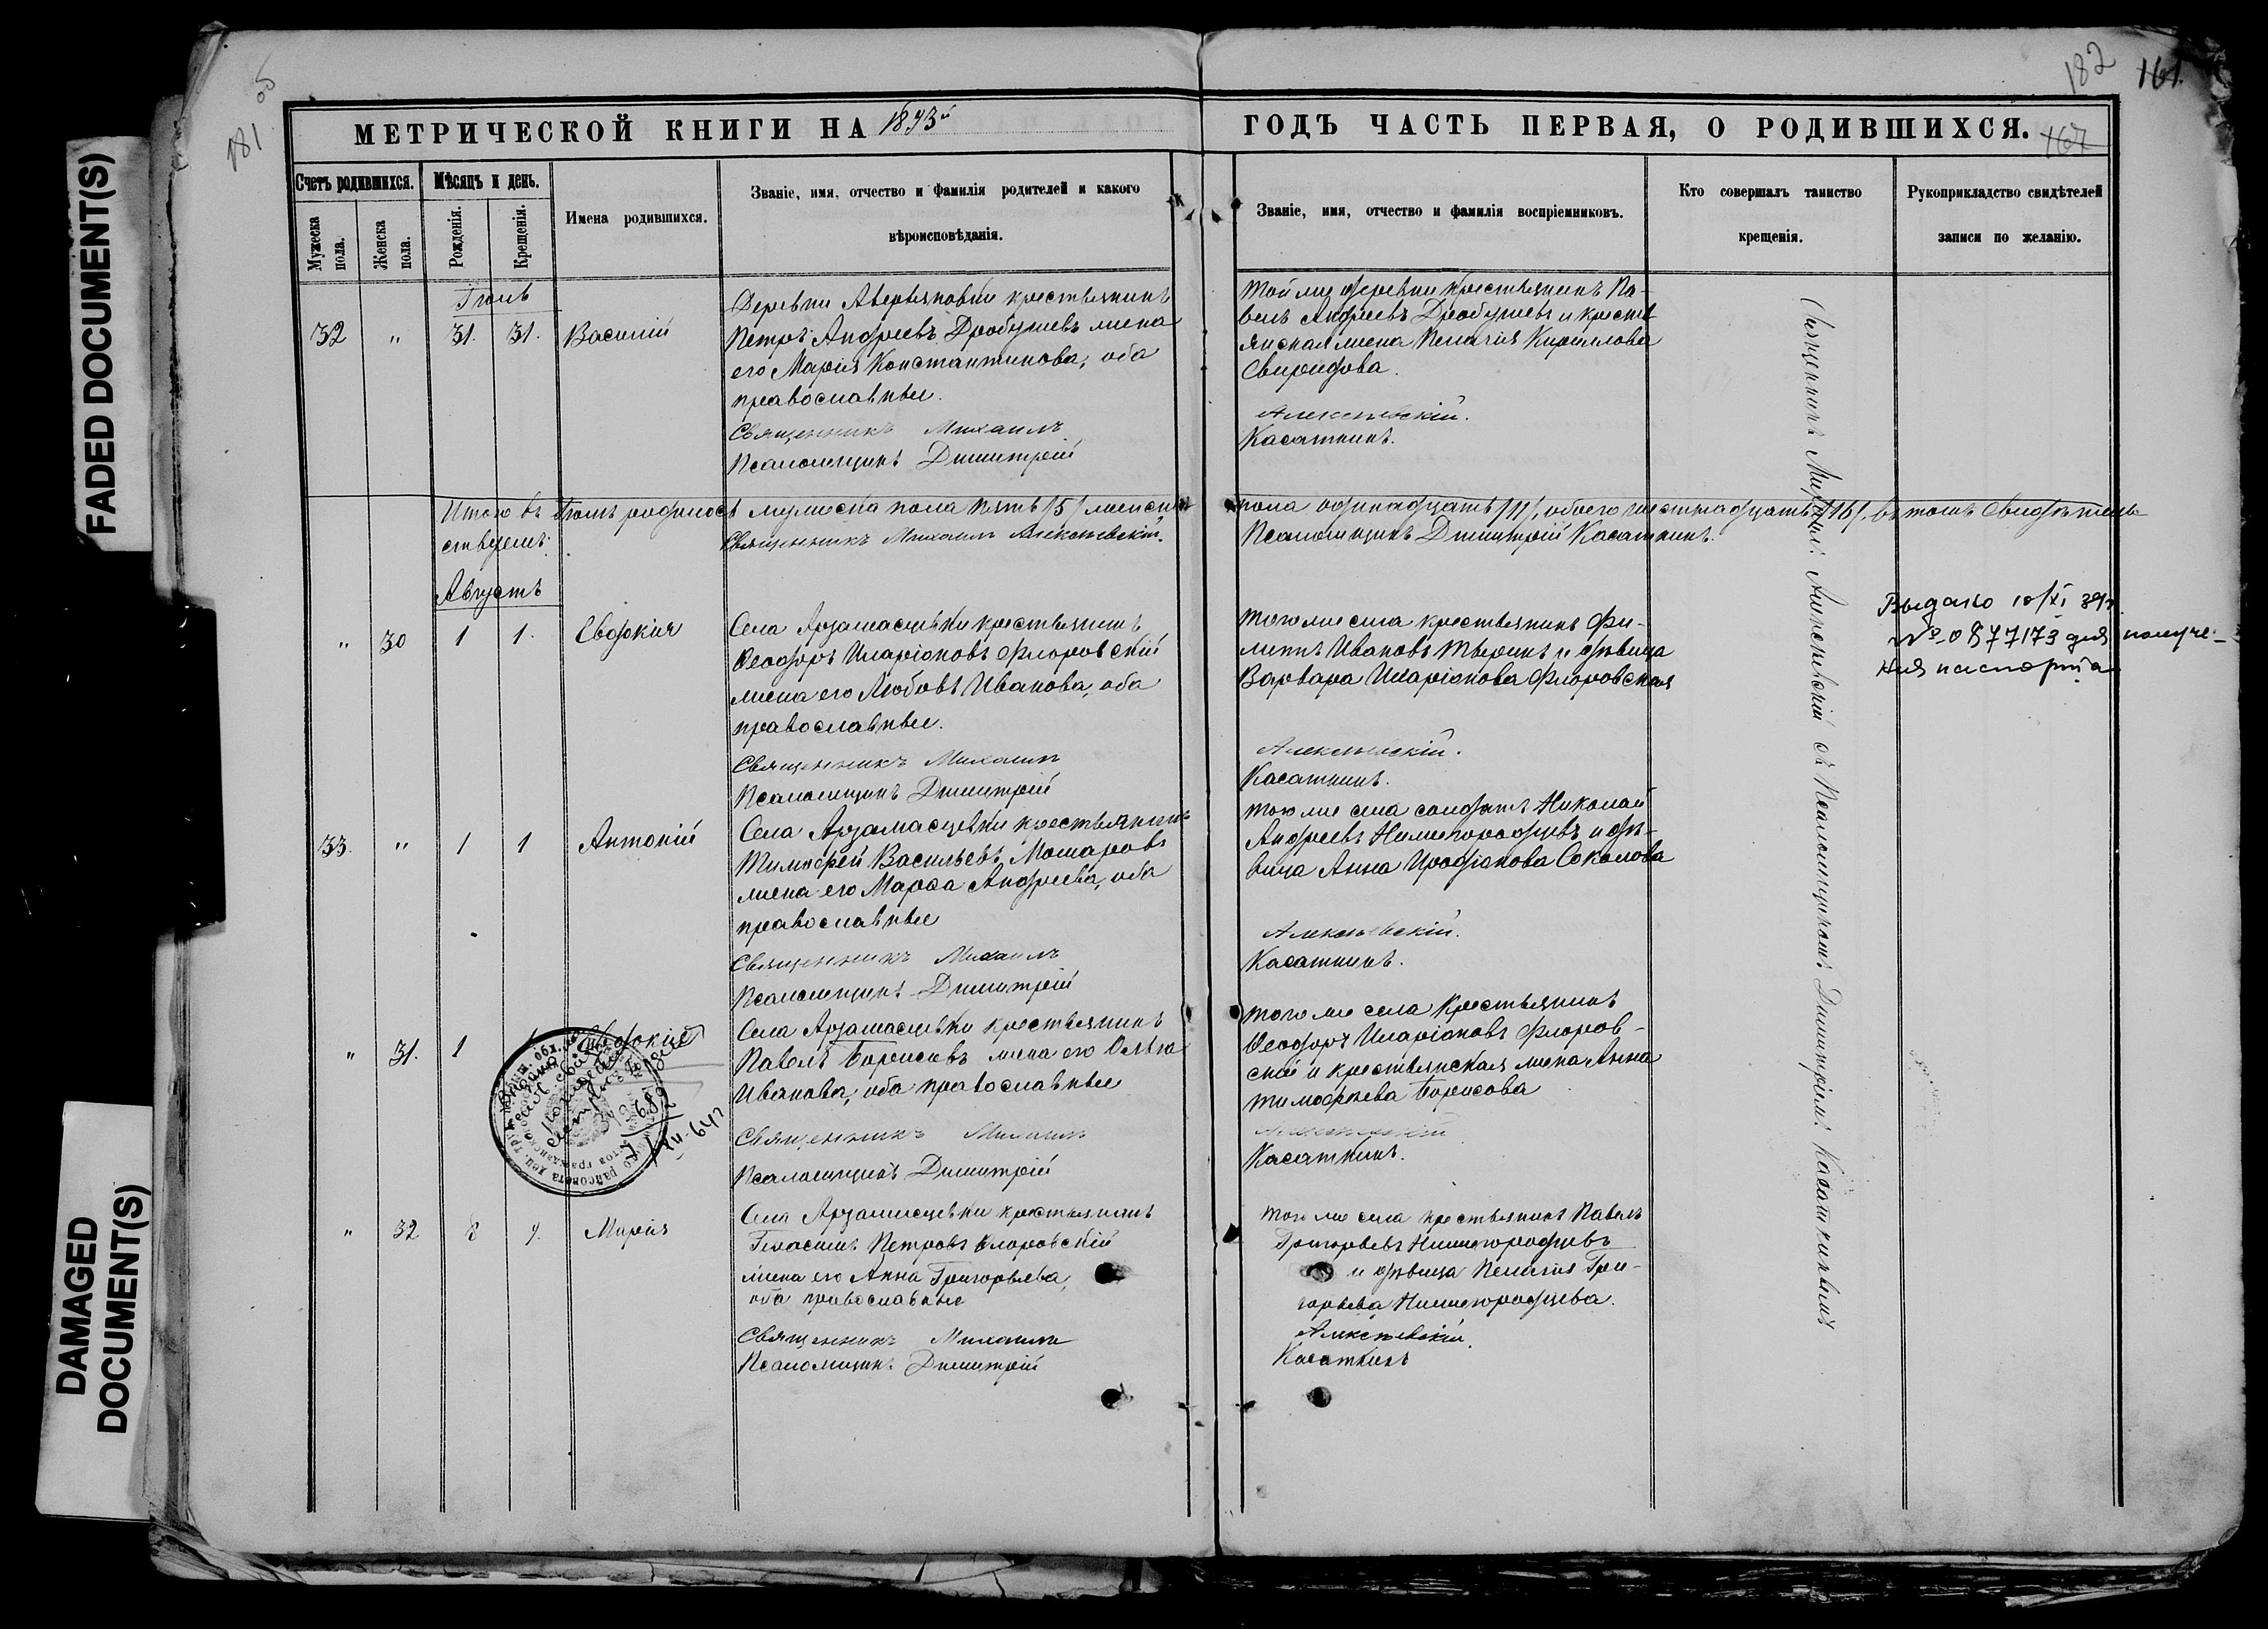 FADED DOCUMENT(S)
DAMAGED
DOCUMENT(S)
181
182
161.
167
МЕТРИЧЕСКОЙ КНИГИ НА 1893й
ГОДЪ ЧАСТЬ ПЕРВАЯ, О РОДИВШИХСЯ.
Счетъ родившихся.
Мужеска пола.
Женска пола.
Мѣсяцъ и день.
Рожденія.
Крещенія.
Имена родившихся.
Званіе, имя, отчество и фамилія родителей и какого
вѣроисповѣданія.
Званіе, имя, отчество и фамилія воспріемниковъ.
Кто совершалъ таинство
крещенія.
Рукоприкладство свидѣтелей
записи по желанію.
Іюль
32 " 31. 31. Василій
Деревни Аверьяновки крестьянинъ
Петръ Андреевъ Дробушевъ жена
его Марія Константинова, оба
православные.
Священникъ Михаилъ
Псаломщикъ Димитрій
Той же деревни крестьянинъ Па-
велъ Андреевъ Дробушевъ и кресть
янская жена Пелагія Кириллова
Свиридова.
Алексѣевскій.
Касаткинъ.
Итого въ Іюлѣ родилось мужеска пола пять /5/ женска
пола одинадцать /11/, обоего шестнадцать /16/, въ томъ свидѣтель
ствуемъ:
Священникъ Михаилъ Алексѣевскій.
Псаломщикъ Димитрій Касаткинъ.
Августъ
" 30 1 1. Евдокія
Села Арзамасцевки крестьянинъ
Ѳеодоръ Иларіоновъ Флоровскій
жена его Любовь Иванова, оба
православные.
Священникъ Михаилъ
Псаломщикъ Димитрій
Того же села крестьянинъ Фи-
липпъ Ивановъ Тверинъ и дѣвица
Варвара Иларіонова Флоровская
Алексѣевскій.
Касаткинъ.
Выдано 10/XI 39г.
№ 0877173 для получе-
ния паспорта
33. " 1 1 Антоній
Села Арзамасцевки крестьянинъ
Тимофей Васильевъ Мошаровъ
жена его Марѳа Андреева, оба
православные
Священникъ Михаилъ
Псаломщикъ Димитрій
Того же села солдатъ Николай
Андреевъ Нижегородцевъ и дѣ-
вица Анна Иродіонова Соколова
Алексѣевскій.
Касаткинъ.
" 31. 1 1 Евдокія
Села Арзамасцевки крестьянинъ
Павелъ Борисовъ жена его Ольга
Иванова, оба православные
Священникъ Михаилъ
Псаломщикъ Димитрій
того же села крестьянинъ
Ѳеодоръ Иларіоновъ Флоров-
скій и крестьянская жена Анна
Тимофѣева Борисова
Касаткинъ.
" 32 8 9. Марія
Села Арзамасцевки крестьянинъ
Герасимъ Петровъ Флоровскій
жена его Анна Григорьева,
оба православные
Священникъ Михаилъ
Псаломщикъ Димитрій
того же села крестьянинъ Павелъ
Григорьевъ Нижегородцевъ
и дѣвица Пелагія Гри-
горьева Нижегородцева.
Алексѣевскій
Касаткинъ
Священникъ Михаилъ Алексѣевскій съ Псаломщикомъ Димитріемъ Касаткинымъ